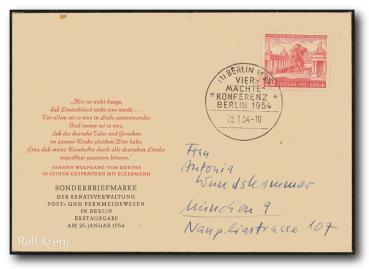 „Mir ist nicht bange,
daß Deutschland nicht eins werde . . .
Vor allem sei es eins in Liebe untereinander.
Und immer sei es eins,
daß der deutsche Taler und Groschen
im ganzen Reiche gleichen Wert habe.
Eins, daß mein Reisekoffer durch alle deutschen Länder
ungeöffnet passieren könne."
JOHANN WOLFGANG VON GOETHE
IN SEINEN GESPRÄCHEN MIT ECKERMANN
SONDERBRIEFMARKE
DER SENATSVERWALTUNG
POST- UND FERNMELDEWESEN
IN BERLIN
ERSTAUSGABE
AM 25. JANUAR 1954
Ralf Krenz
DEUTSCHE POST BERLIN
BERLIN
VIER-
MÄCHTE-
KONFERENZ
BERLIN 1954
25.1.54-10
Frau
Antonia
Wundshammer
München 9
Naupliastrasse 107